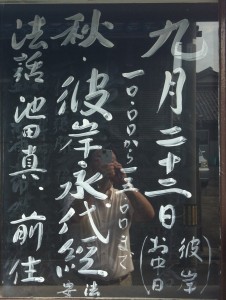 九月二十二日
彼岸
（お中日）
一〇・〇〇から一五・〇〇まで
秋・彼岸・永代経
法要
法話 池田真・前住